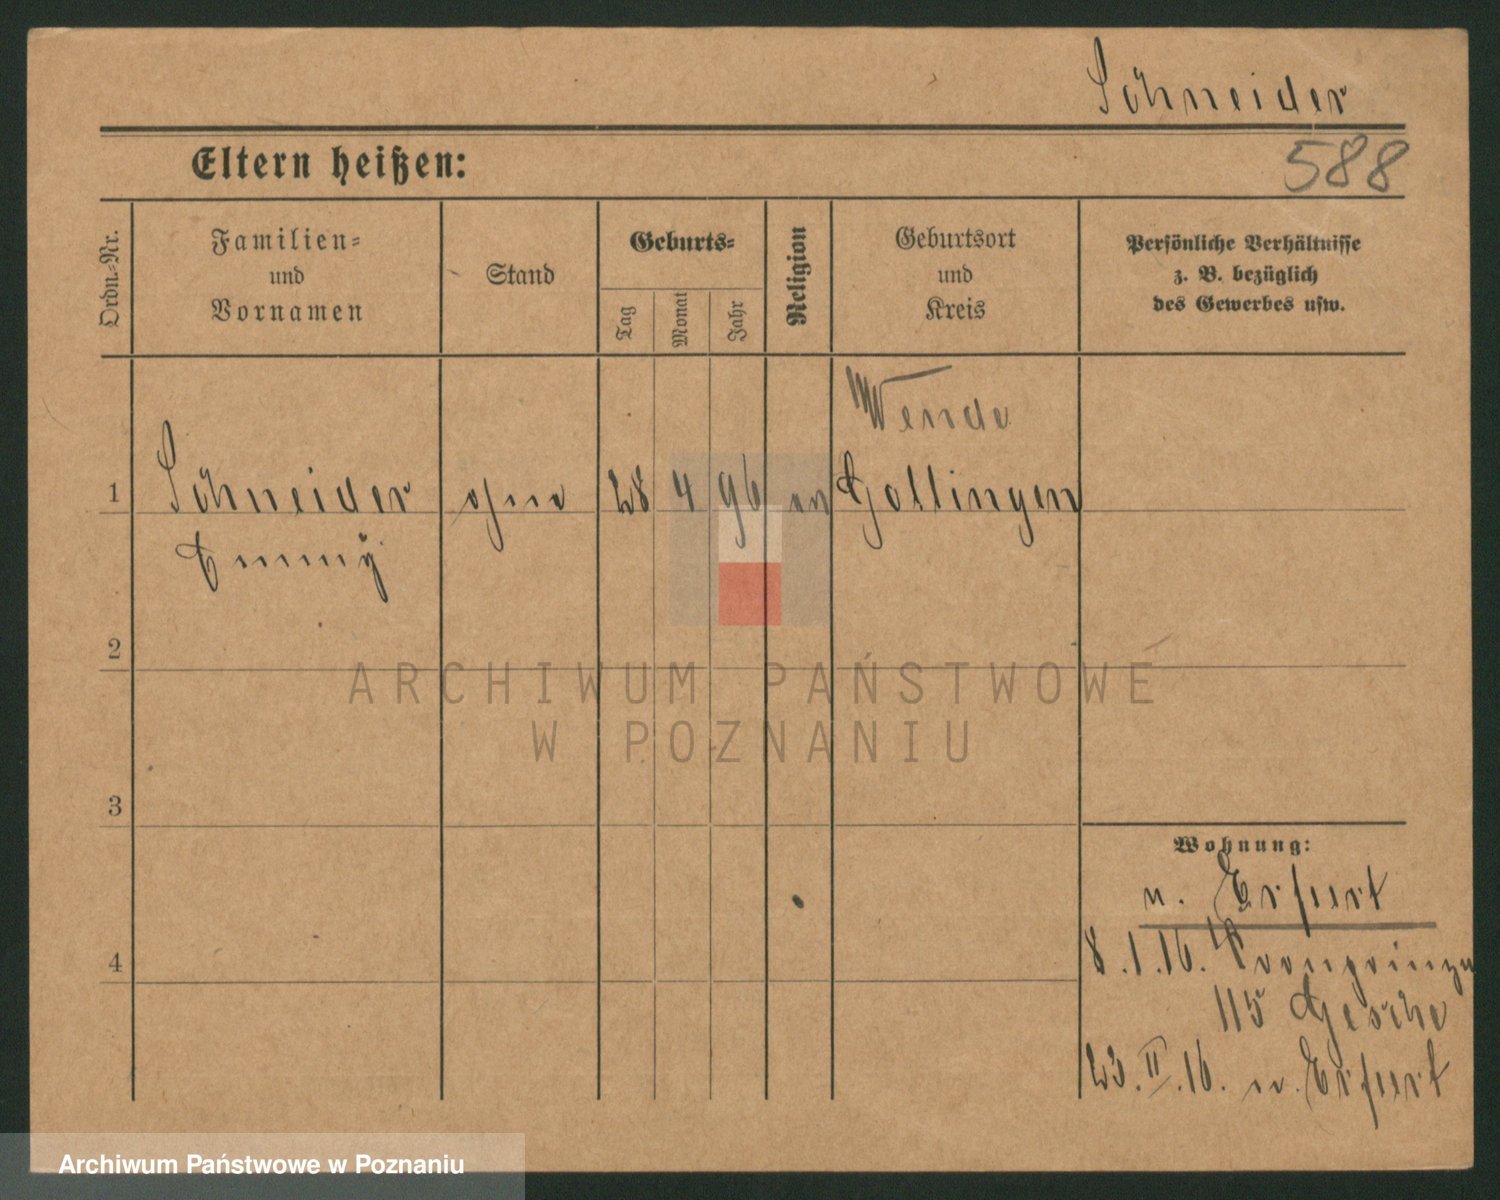 Schneider
Eltern heißen:
588
Ordn.-Nr.
Familien-
und
Vornamen
Stand
Geburts-
Tag
Monat
Jahr
Religion
Geburtsort
und
Kreis
Persönliche Verhältnisse
z. B. bezüglich
des Gewerbes usw.
Wende
1 Schneider ohne 28 4 96 ev Gollingen
Emmy
2
ARCHIWUM PAŃSTWOWE
W POZNANIU
3
Wohnung:
n. Erfurt
4
8.1.16. Kronprinzen
115 Gesche
23.II.16. n. Erfurt
Archiwum Państwowe w Poznaniu